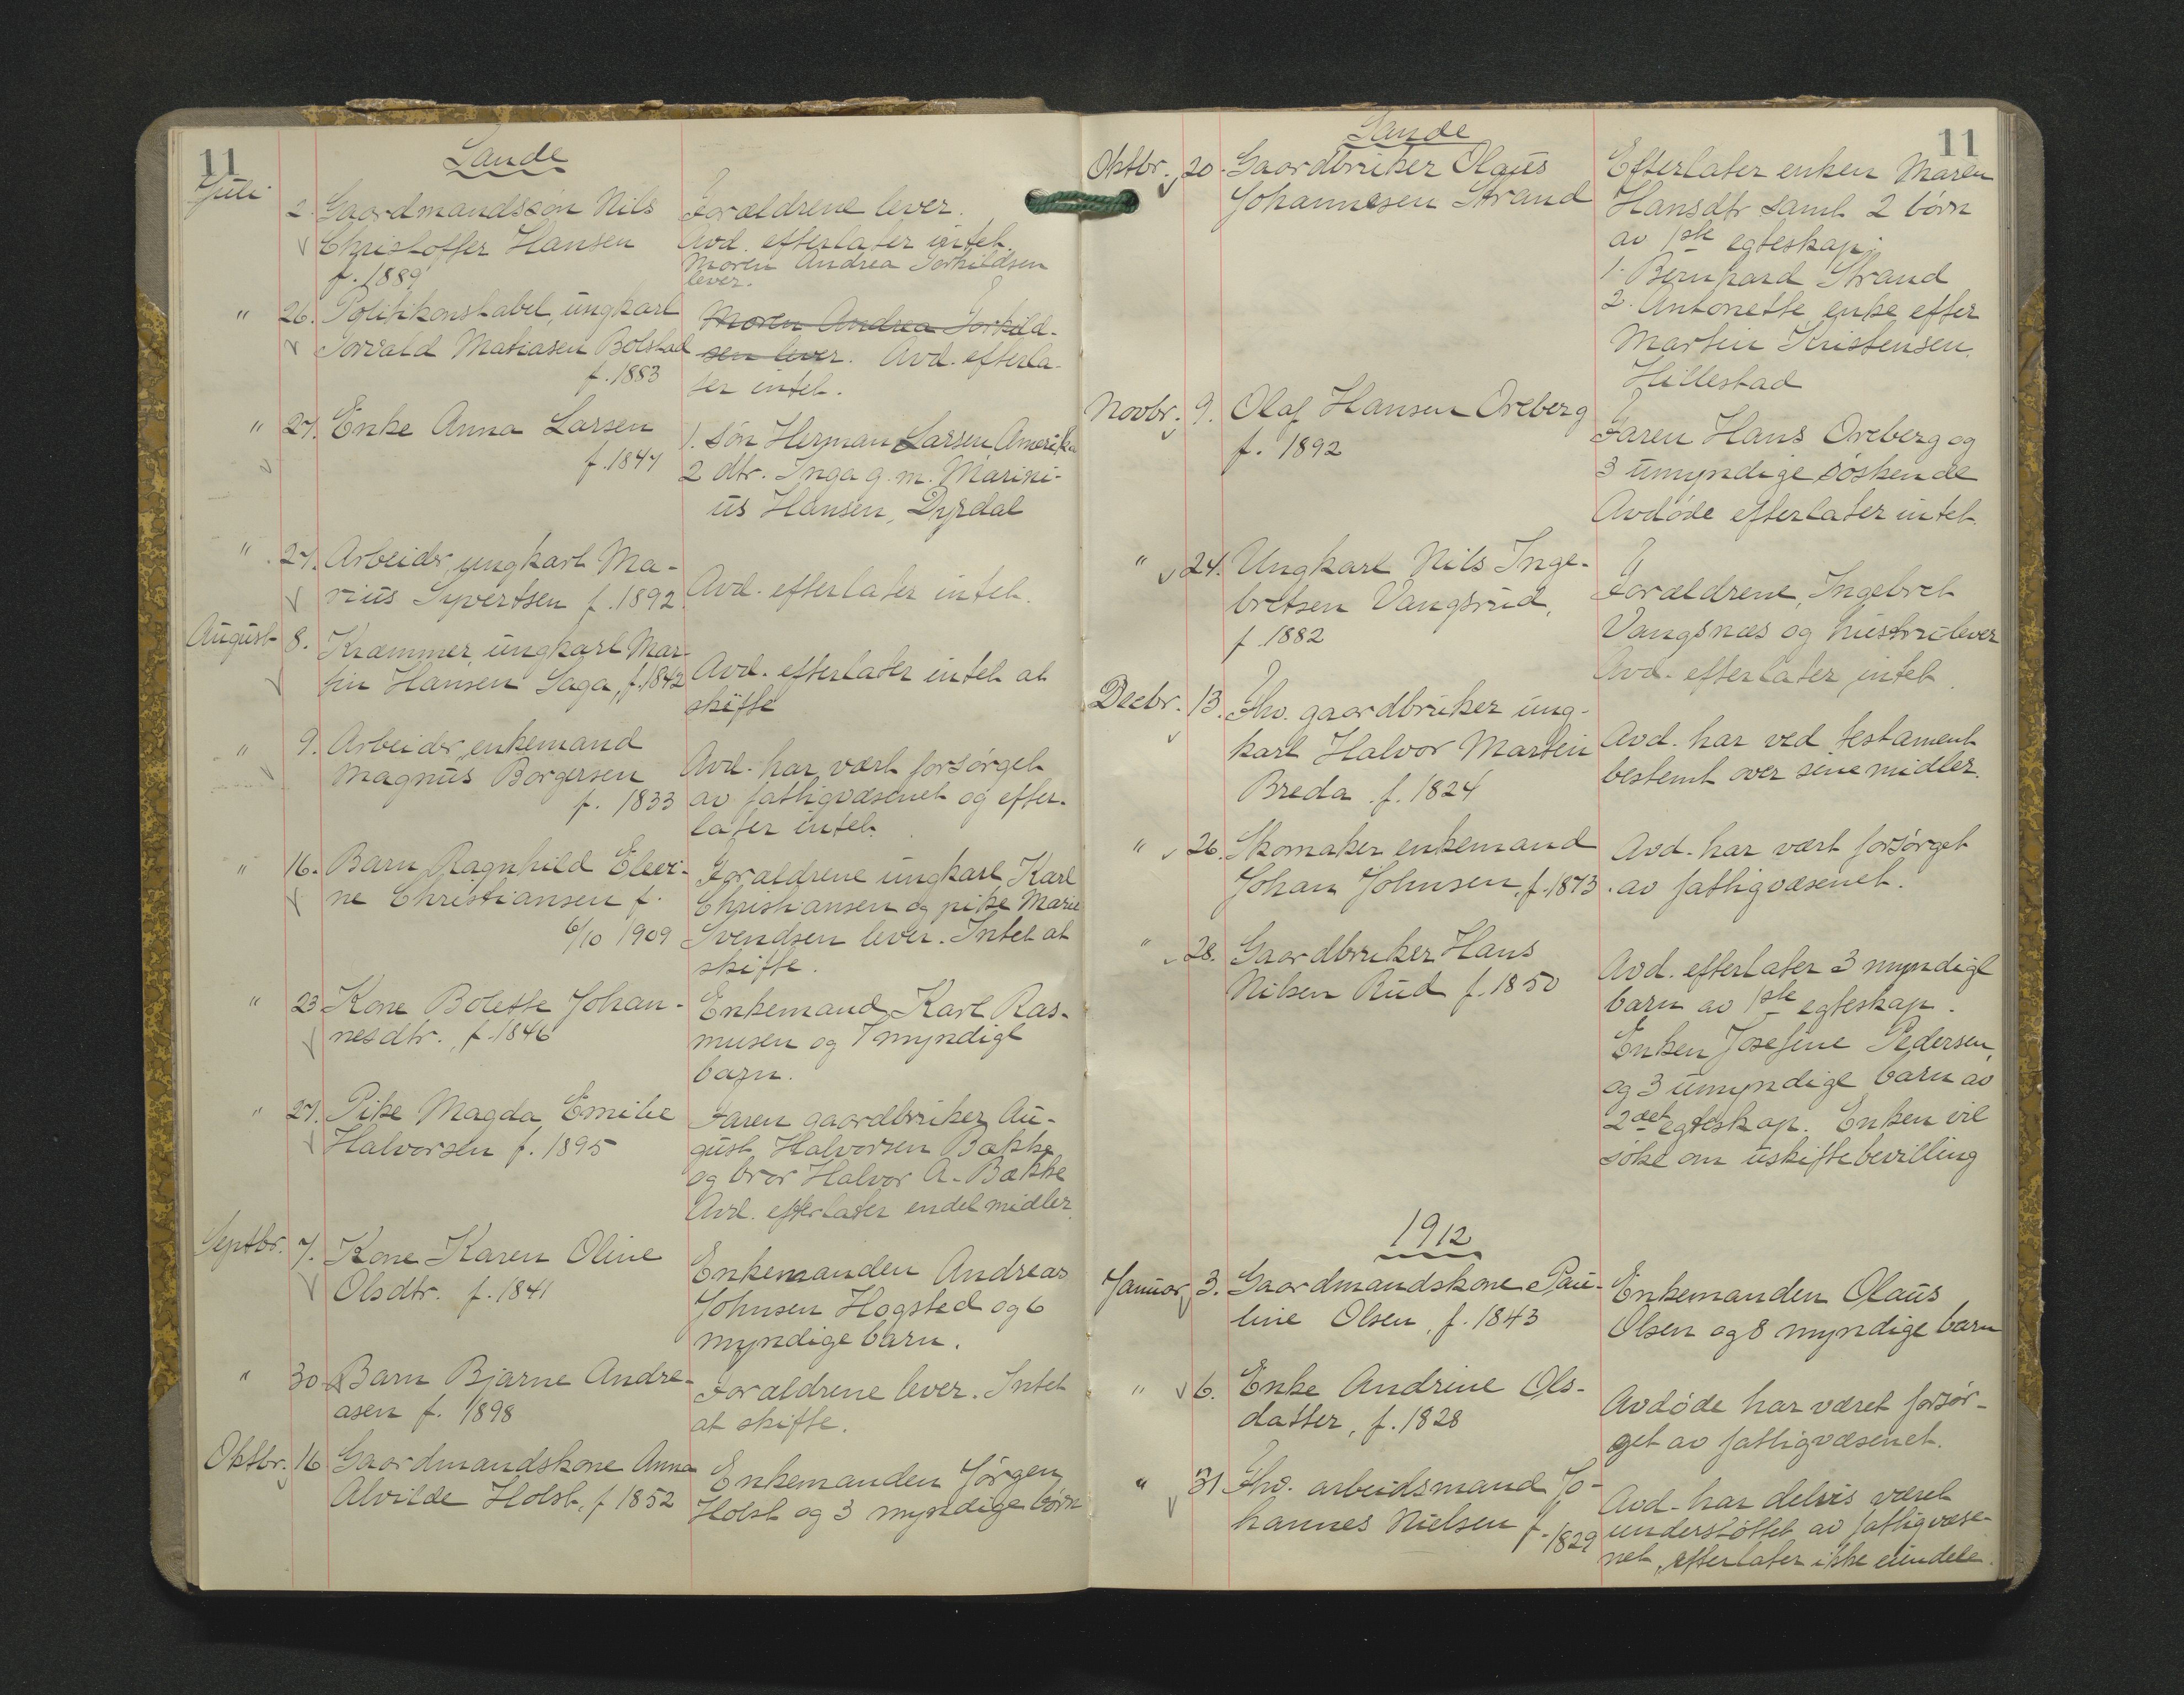 11
Sande
Juli 2. Gaardmandssøn Nils
Christoffer Hansen
f. 1889
Forældrene lever.
Avd. efterlater intet.
Moren Andrea Torkildsen
lever.
" 26. Politikonstabel, ungkarl
Torvald Matiasen Bolstad
f. 1883
Moren Andrea Torkild-
sen lever. Avd. efterla-
ter intet.
" 27. Enke Anna Larsen
f. 1847
1. Søn Herman Larsen Amerika
2 dtr. Inga g. m. Marini-
us Hansen, Dyrdal
" 27. Arbeider, ungkarl Ma-
rius Syvertsen f. 1892
Avd. efterlater intet.
August 8. Kræmmer, ungkarl Mar-
tin Hansen Saga, f. 1842
Avd. efterlater intet at
skifte
" 9. Arbeider, enkemand
Magnus Borgersen
f. 1833
Avd. har vært forsørget
av fattigvæsenet og efter-
later intet.
" 16. Barn Ragnhild Eleri-
ne Christiansen f.
6/10 1909
Forældrene ungkarl Karl
Christiansen og pike Marie
Svendsen lever. Intet at
skifte.
" 23 Kone Bolette Johan-
nesdtr., f. 1846
Enkemand Karl Ras-
musen og 7 myndige
barn.
" 27. Pike Magda Emilie
Halvorsen f. 1895
Faren gaardbruker Au-
gust Halvorsen Bække
og bror Halvor A. Bække
Avd. efterlater endel midler
Septbr. 7. Kone Karen Oline
Olsdtr. f. 1841
Enkemanden Andreas
Johnsen Hogsted og 6
myndige barn.
" 30. Barn Bjarne Andre-
asen f. 1898
Forældrene lever. Intet
at skifte.
Oktbr. 16 Gaardmandskone Anna
Alvilde Holst, f 1852
Enkemanden Jørgen
Holst og 3 myndige børn
11
Sande
Oktbr. 20. Gaardbruker Olaus
Johannesen Strand
Efterlater enken Maren
Hansdtr samt 2 børn
av 1ste egteskap:
1. Bernhard Strand
2. Antonette enke efter
Martin Kristensen,
Hillestad
Novbr. 9. Olaf Hansen Oreberg
f. 1892
Faren Hans Oreberg og
3 umyndige søskende
Avdøde efterlater intet.
" 24. Ungkarl Nils Inge-
bretsen Vangsrud,
f 1882
Forældrene, Ingebret
Vangsnæs og hustru lever
Avd. efterlater intet.
Decbr. 13. Fhv. gaardbruker ung-
karl Halvor Martin
Breda f. 1824
Avd. har ved testament
bestemt over sine midler.
" 26. Skomaker enkemand
Johan Johnsen, f. 1873
Avd. har vært forsørget
av fattigvæsenet.
" 28. Gaardbruker Hans
Nilsen Rud f. 1850
Avd. efterlater 3 myndige
barn av 1ste egteskap.
Enken Josefine Pedersen
og 3 umyndige barn av
2det egteskap. Enken vil
søke om uskiftebevilling
1912
Januar 3. Gaardmandskone Pau-
line Olsen, f. 1843
Enkemanden Olaus
Olsen og 8 myndige barn
" 6. Enke Andrine Ols-
datter, f. 1828
Avdøde har været forsør-
get av fattigvæsenet.
" 31 Fhv. arbeidsmand Jo-
hannes Nielsen f. 1829
Avd. har delvis været
understøttet av fattigvæse-
net, efterlater ikke eiendele.